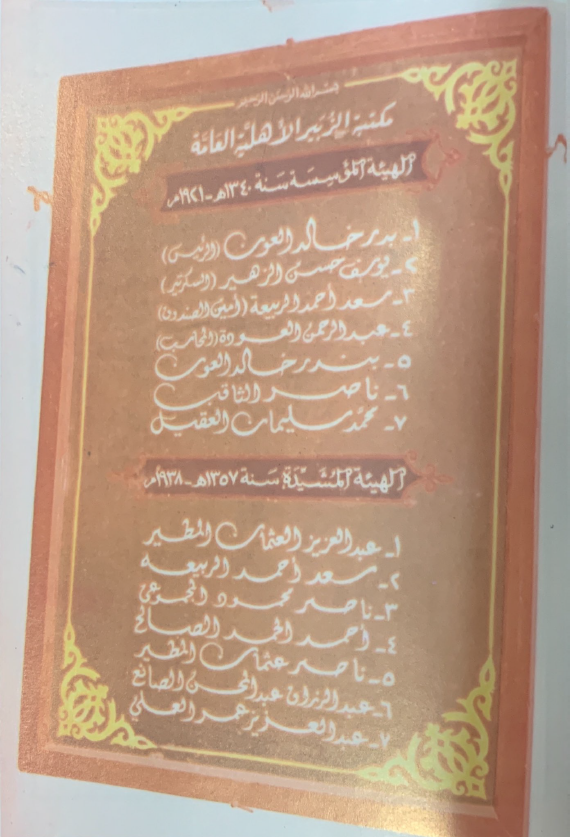 بسم الله الرحمن الرحيم
مكتبة الزُّبير الأهليّة العَامَّة
الهيئة المؤسِسَة سَنة ١٣٤٠هـ - ١٩٢١م
١- بدر خالد العون (الرئيس)
٢- يوسف حسن الزهير (السكرتير)
٣- سعد أحمد الربيعة (أمين الصندوق)
٤- عبد الرحمن العودة (المحاسب)
٥- بندر خالد العون
٦- ناصر الثاقب
٧- محمَّد سليمان العقيل
الهيئة المُشَيِّدَة سَنة ١٣٥٧هـ - ١٩٣٨م
١- عبد العزيز العثمان المطير
٢- سعد احمد الربيعه
٣- ناصر محمود المجموعي
٤- أحمد الحمد الصالح
٥- ناصر عثمان المطير
٦- عبد الرزاق عبد المحسن الصانع
٧- عبد العزيز عمر العلي